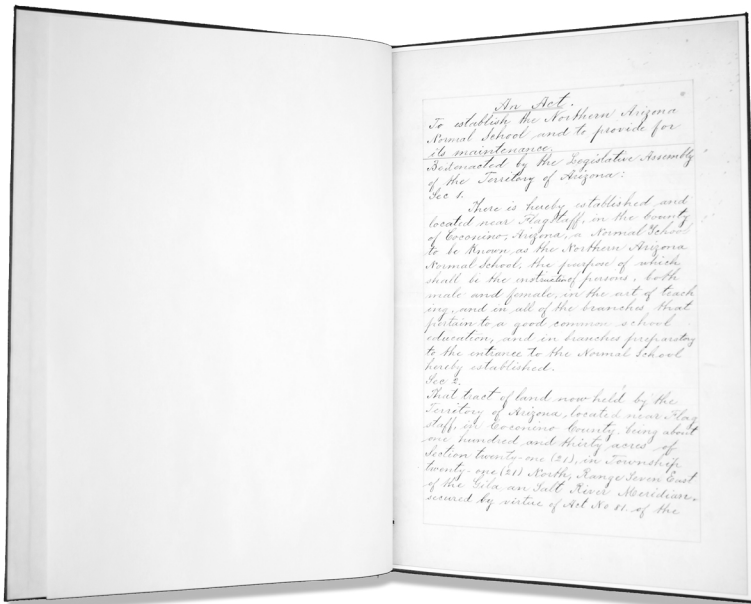 An Act.
To establish the Northern Arizona
Normal School and to provide for
its maintenance.
Be it enacted by the Legislative Assembly
of the Territory of Arizona:
Sec 1.
There is hereby established and
located near Flagstaff, in the County
of Coconino, Arizona, a Normal School
to be known as the Northern Arizona
Normal School, the purpose of which
shall be the instruction of persons, both
male and female, in the art of teach
ing, and in all of the branches that
pertain to a good common school
education, and in branches preparatory
to the entrance to the Normal School
hereby established.
Sec 2.
That tract of land now held by the
Territory of Arizona, located near Flag
staff, in Coconino County, being about
one hundred and thirty acres of
Section twenty-one (21), in Township
twenty-one (21) North, Range Seven East
of the Gila an Salt River Meridian,
secured by virtue of Act No 11. of the